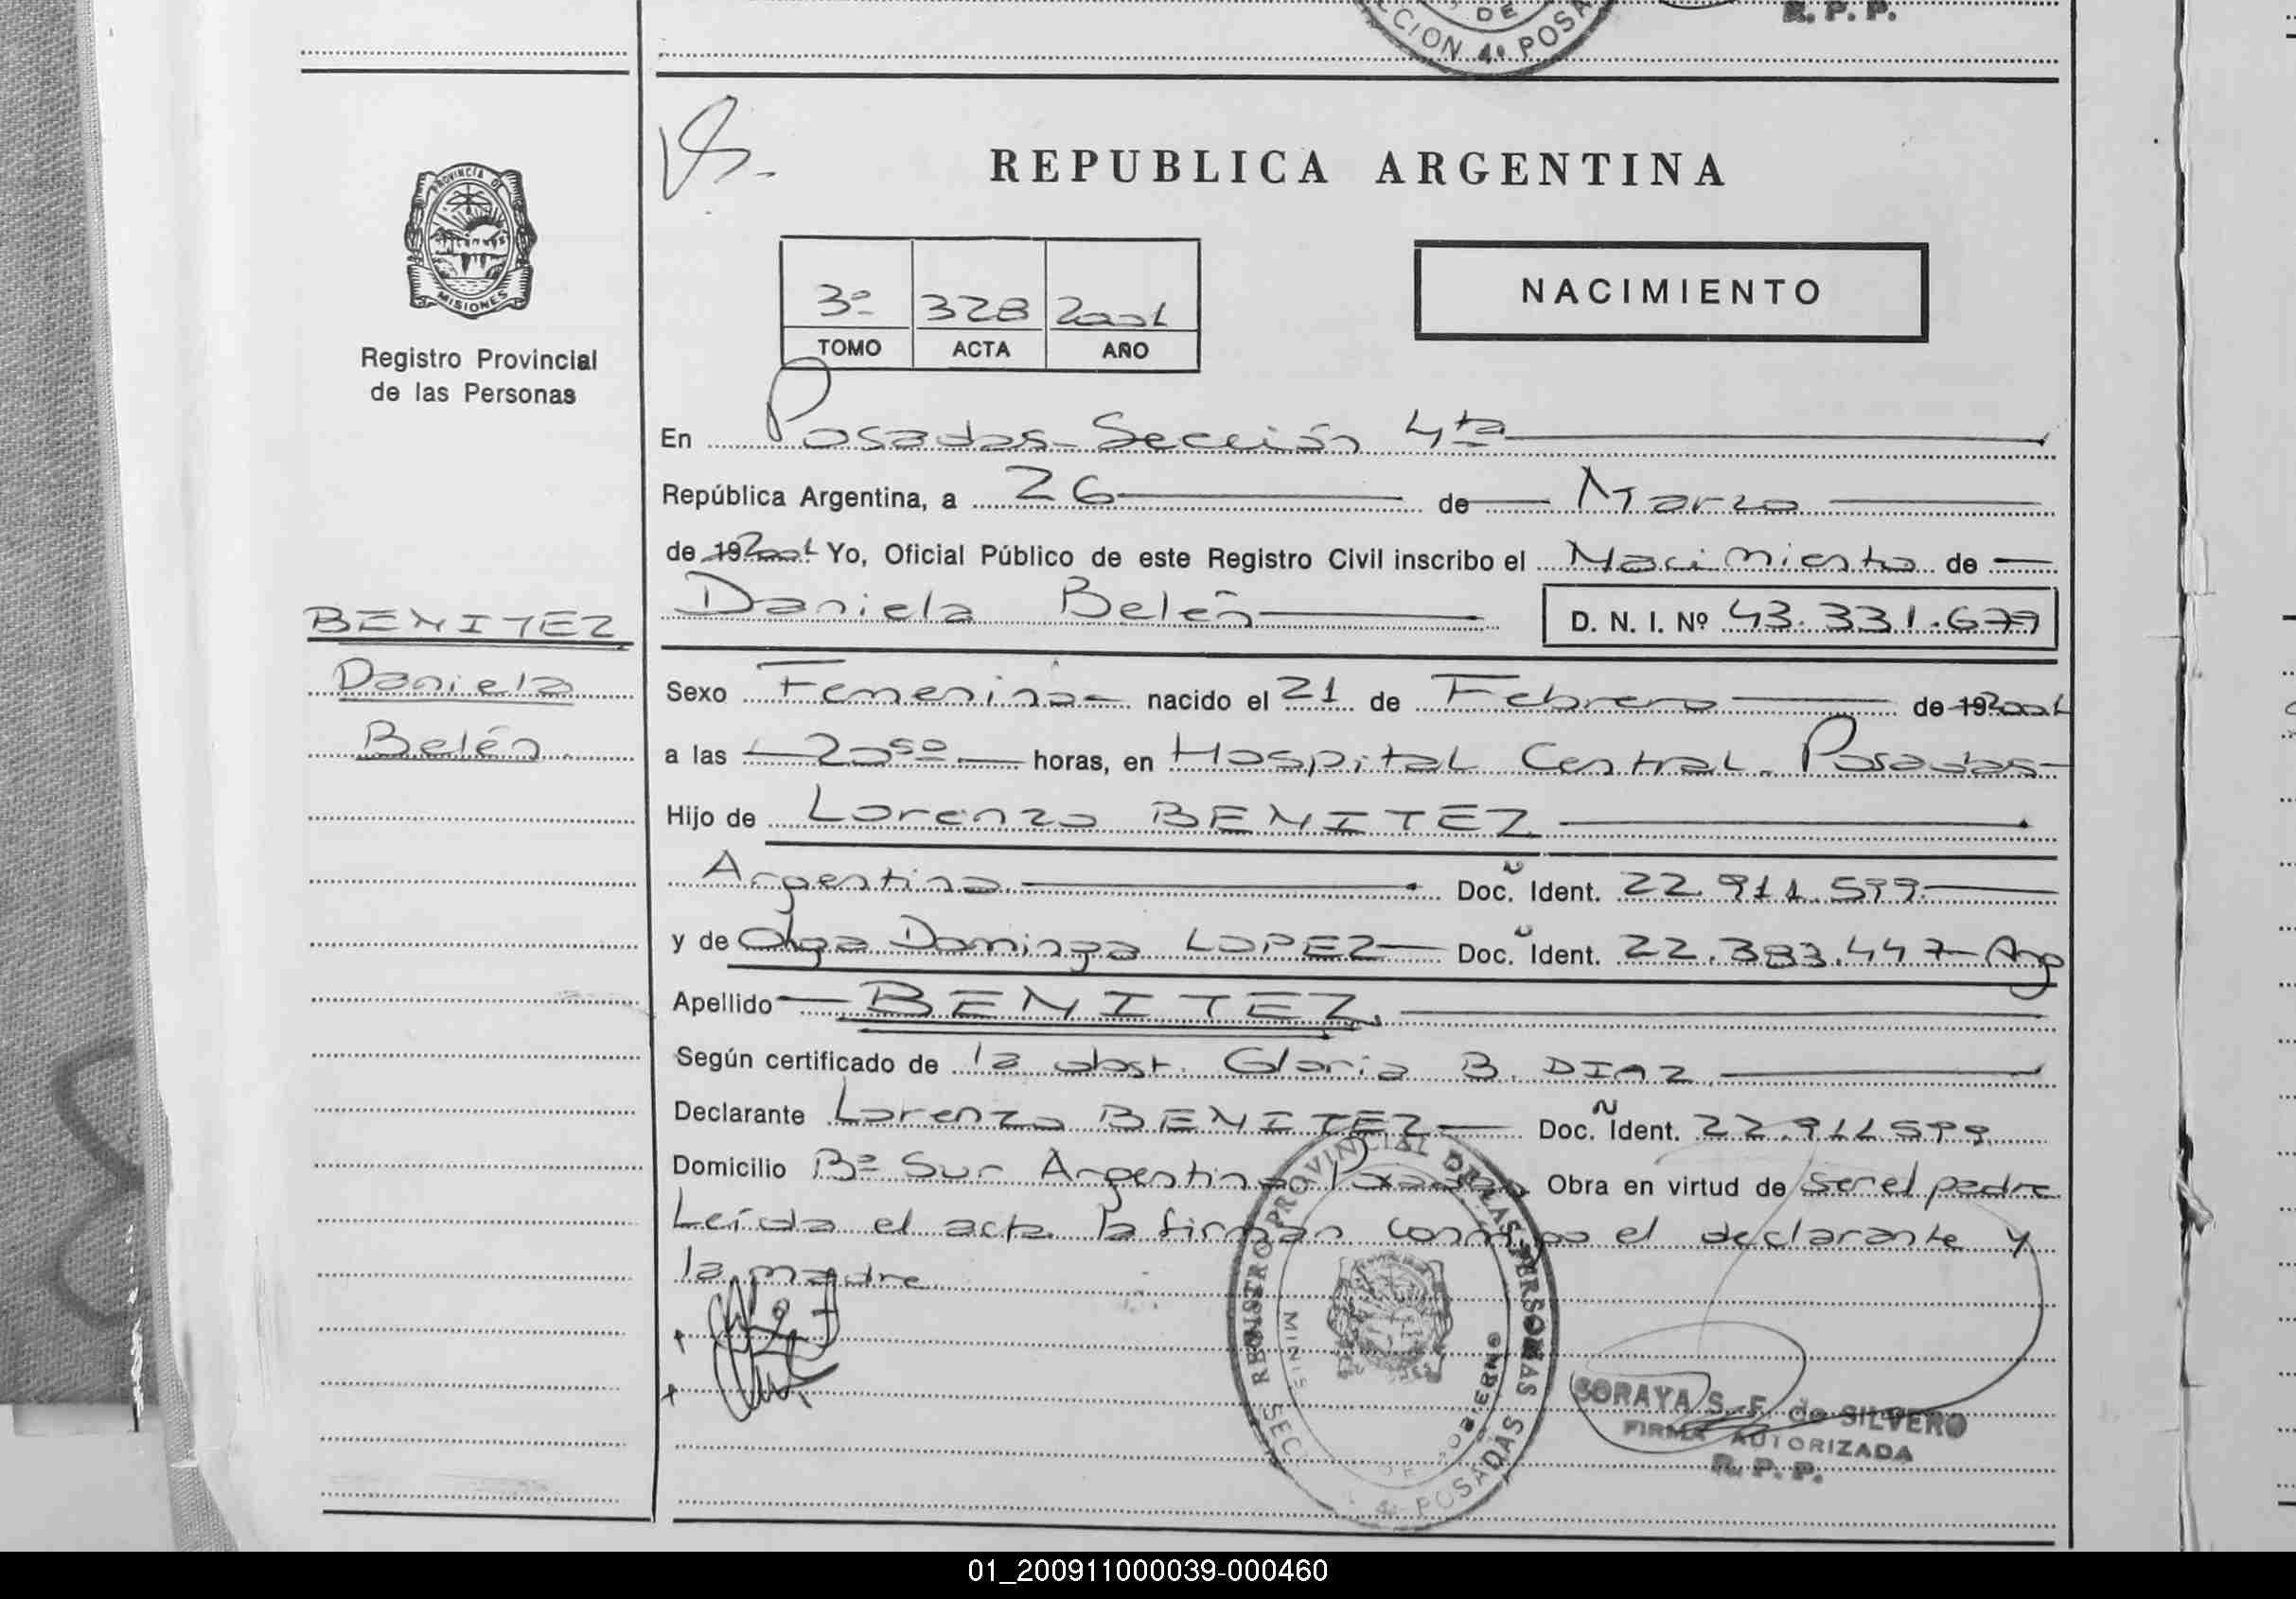 R. P. P.
DE
CION 4º POSA
PROVINCIA D
MISIONES
Registro Provincial
de las Personas
REPUBLICA ARGENTINA
3º 328 2001
TOMO ACTA AÑO
NACIMIENTO
En Posadas-Sección 4ta
República Argentina, a 26 de Marzo
de 192001 Yo, Oficial Público de este Registro Civil inscribo el Nacimiento de
BENITEZ
Daniela Belén D. N. I. Nº 43.331.679
Daniela
Belén
Sexo Femenino nacido el 21 de Febrero de 192001
a las 20 50 horas, en Hospital Central - Posadas-
Hijo de Lorenzo BENITEZ
Argentino Doc. Ident. 22.911.599
y de Olga Dominga LOPEZ Doc. Ident. 22.383.447 - Arg
Apellido BENITEZ.
Según certificado de la obst. Gloria B. DIAZ
Declarante Lorenzo BENITEZ Doc. Ident. 22.911599
Domicilio Bº Sur Argentino Posadas Obra en virtud de ser el padre
Leída el acta la firman conmigo el declarante y
la madre.
REGISTRO PROVINCIAL DE LAS PERSONAS
MINIS DE GOBIERNO
SECC 4º POSADAS
SORAYA S. F. de SILVERO
FIRMA AUTORIZADA
R. P. P.
01_200911000039-000460